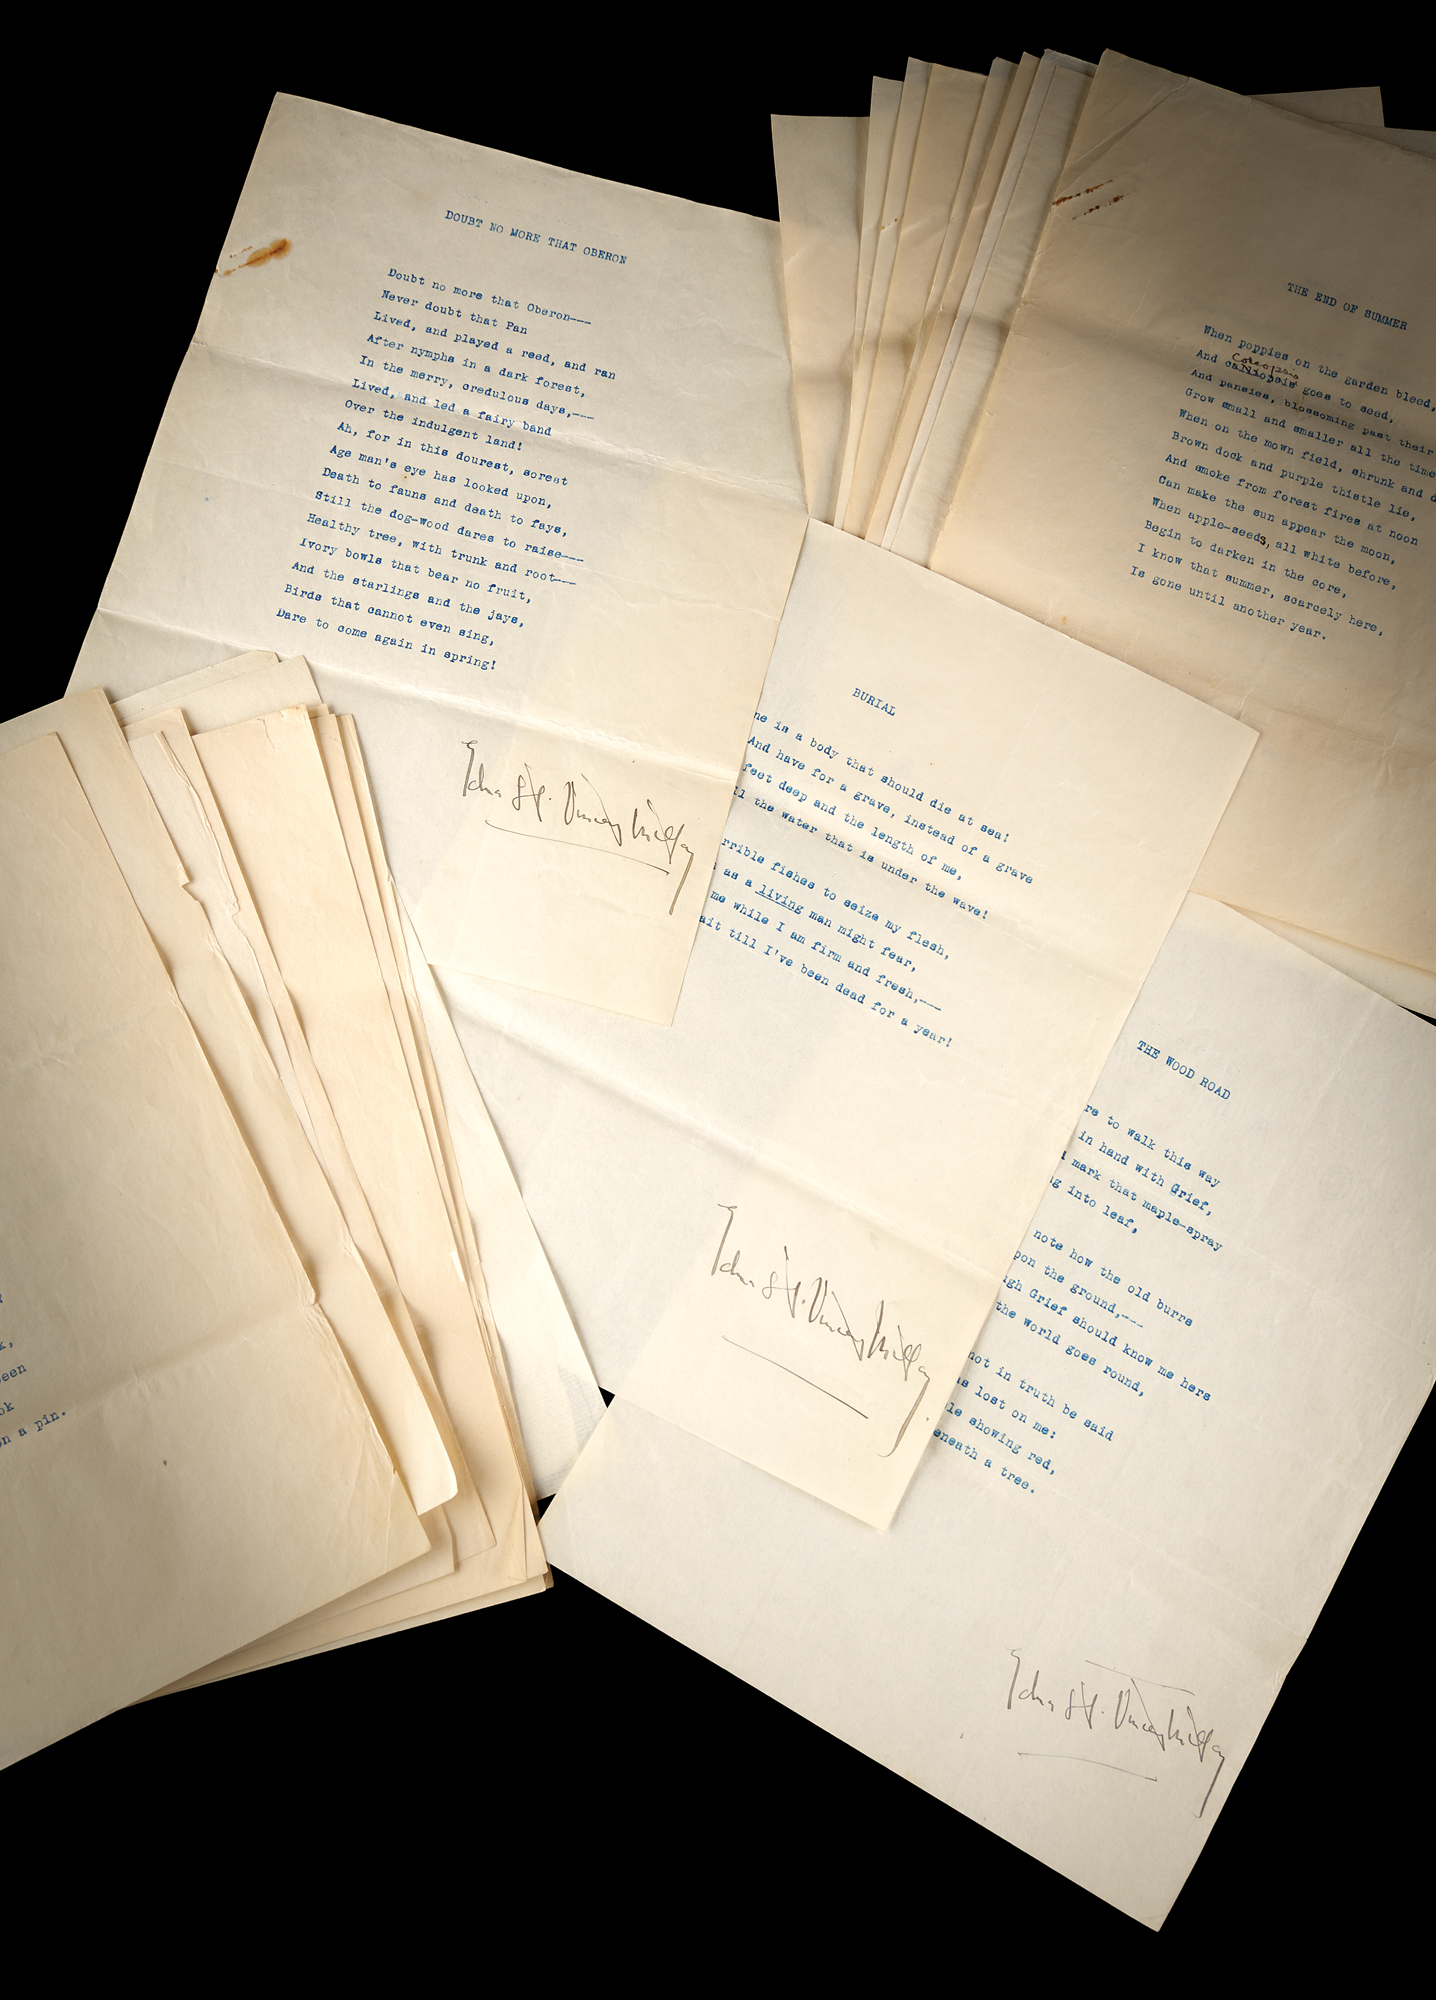 DOUBT NO MORE THAT OBERON
Doubt no more that Oberon---
Never doubt that Pan
Lived, and played a reed, and ran
After nymphs in a dark forest,
In the merry, credulous days,---
Lived, and led a fairy band
Over the indulgent land!
Ah, for in this dourest, sorest
Age man's eye has looked upon,
Death to fauns and death to fays,
Still the dog-wood dares to raise---
Healthy tree, with trunk and root---
Ivory bowls that bear no fruit,
And the starlings and the jays,
Birds that cannot even sing,
Dare to come again in spring!
Edna St. Vincent Millay
THE END OF SUMMER
When poppies on the garden bleed,
Coreopsis
And calliopsis goes to seed,
And pansies, blossoming past their
Grow small and smaller all the time
When on the mown field, shrunk and d
Brown dock and purple thistle lie,
And smoke from forest fires at noon
Can make the sun appear the moon,
When apple-seeds, all white before,
Begin to darken in the core,
I know that summer, scarcely here,
Is gone until another year.
BURIAL
ne is a body that should die at sea!
And have for a grave, instead of a grave
feet deep and the length of me,
ll the water that is under the wave!
rrible fishes to seize my flesh,
as a living man might fear,
me while I am firm and fresh,---
ait till I've been dead for a year!
Edna St. Vincent Millay
THE WOOD ROAD
re to walk this way
in hand with Grief,
mark that maple-spray
g into leaf,
note how the old burrs
pon the ground,---
gh Grief should know me hers
the World goes round,
not in truth be said
as lost on me:
le showing red,
eneath a tree.
Edna St. Vincent Millay
k,
een
ok
on a pin.